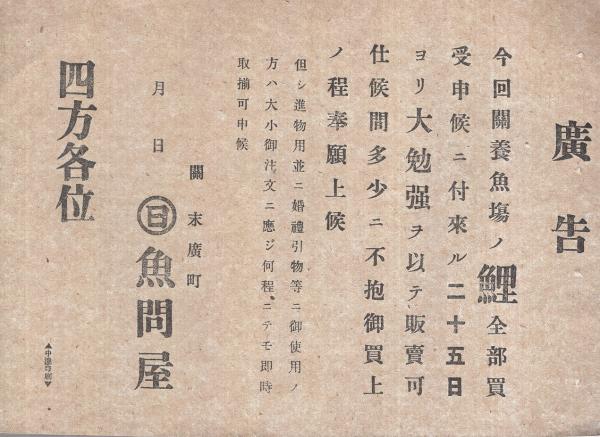 廣告
今回關養魚塲ノ鯉全部買
受申候ニ付來ル二十五日
ヨリ大勉强ヲ以テ販賣可
仕候間多少ニ不抱御買上
ノ程奉願上候
但シ進物用並ニ婚禮引物等ニ御使用ノ
方ハ大小御注文ニ應ジ何程ニテモ即時
取揃可申候
月 日
關末廣町
㊐魚問屋
四方各位